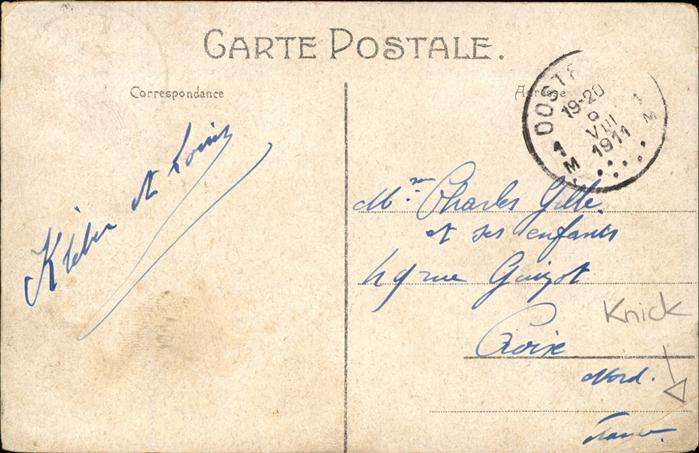 CARTE POSTALE.
Correspondance
Adresse
OOSTE
19-20
VIII
1911
1 M
1 M
Kléber et Louis
Mr Charles Gille.
et ses enfants
49 rue Guizot
Croix
Nord.
France
Knick